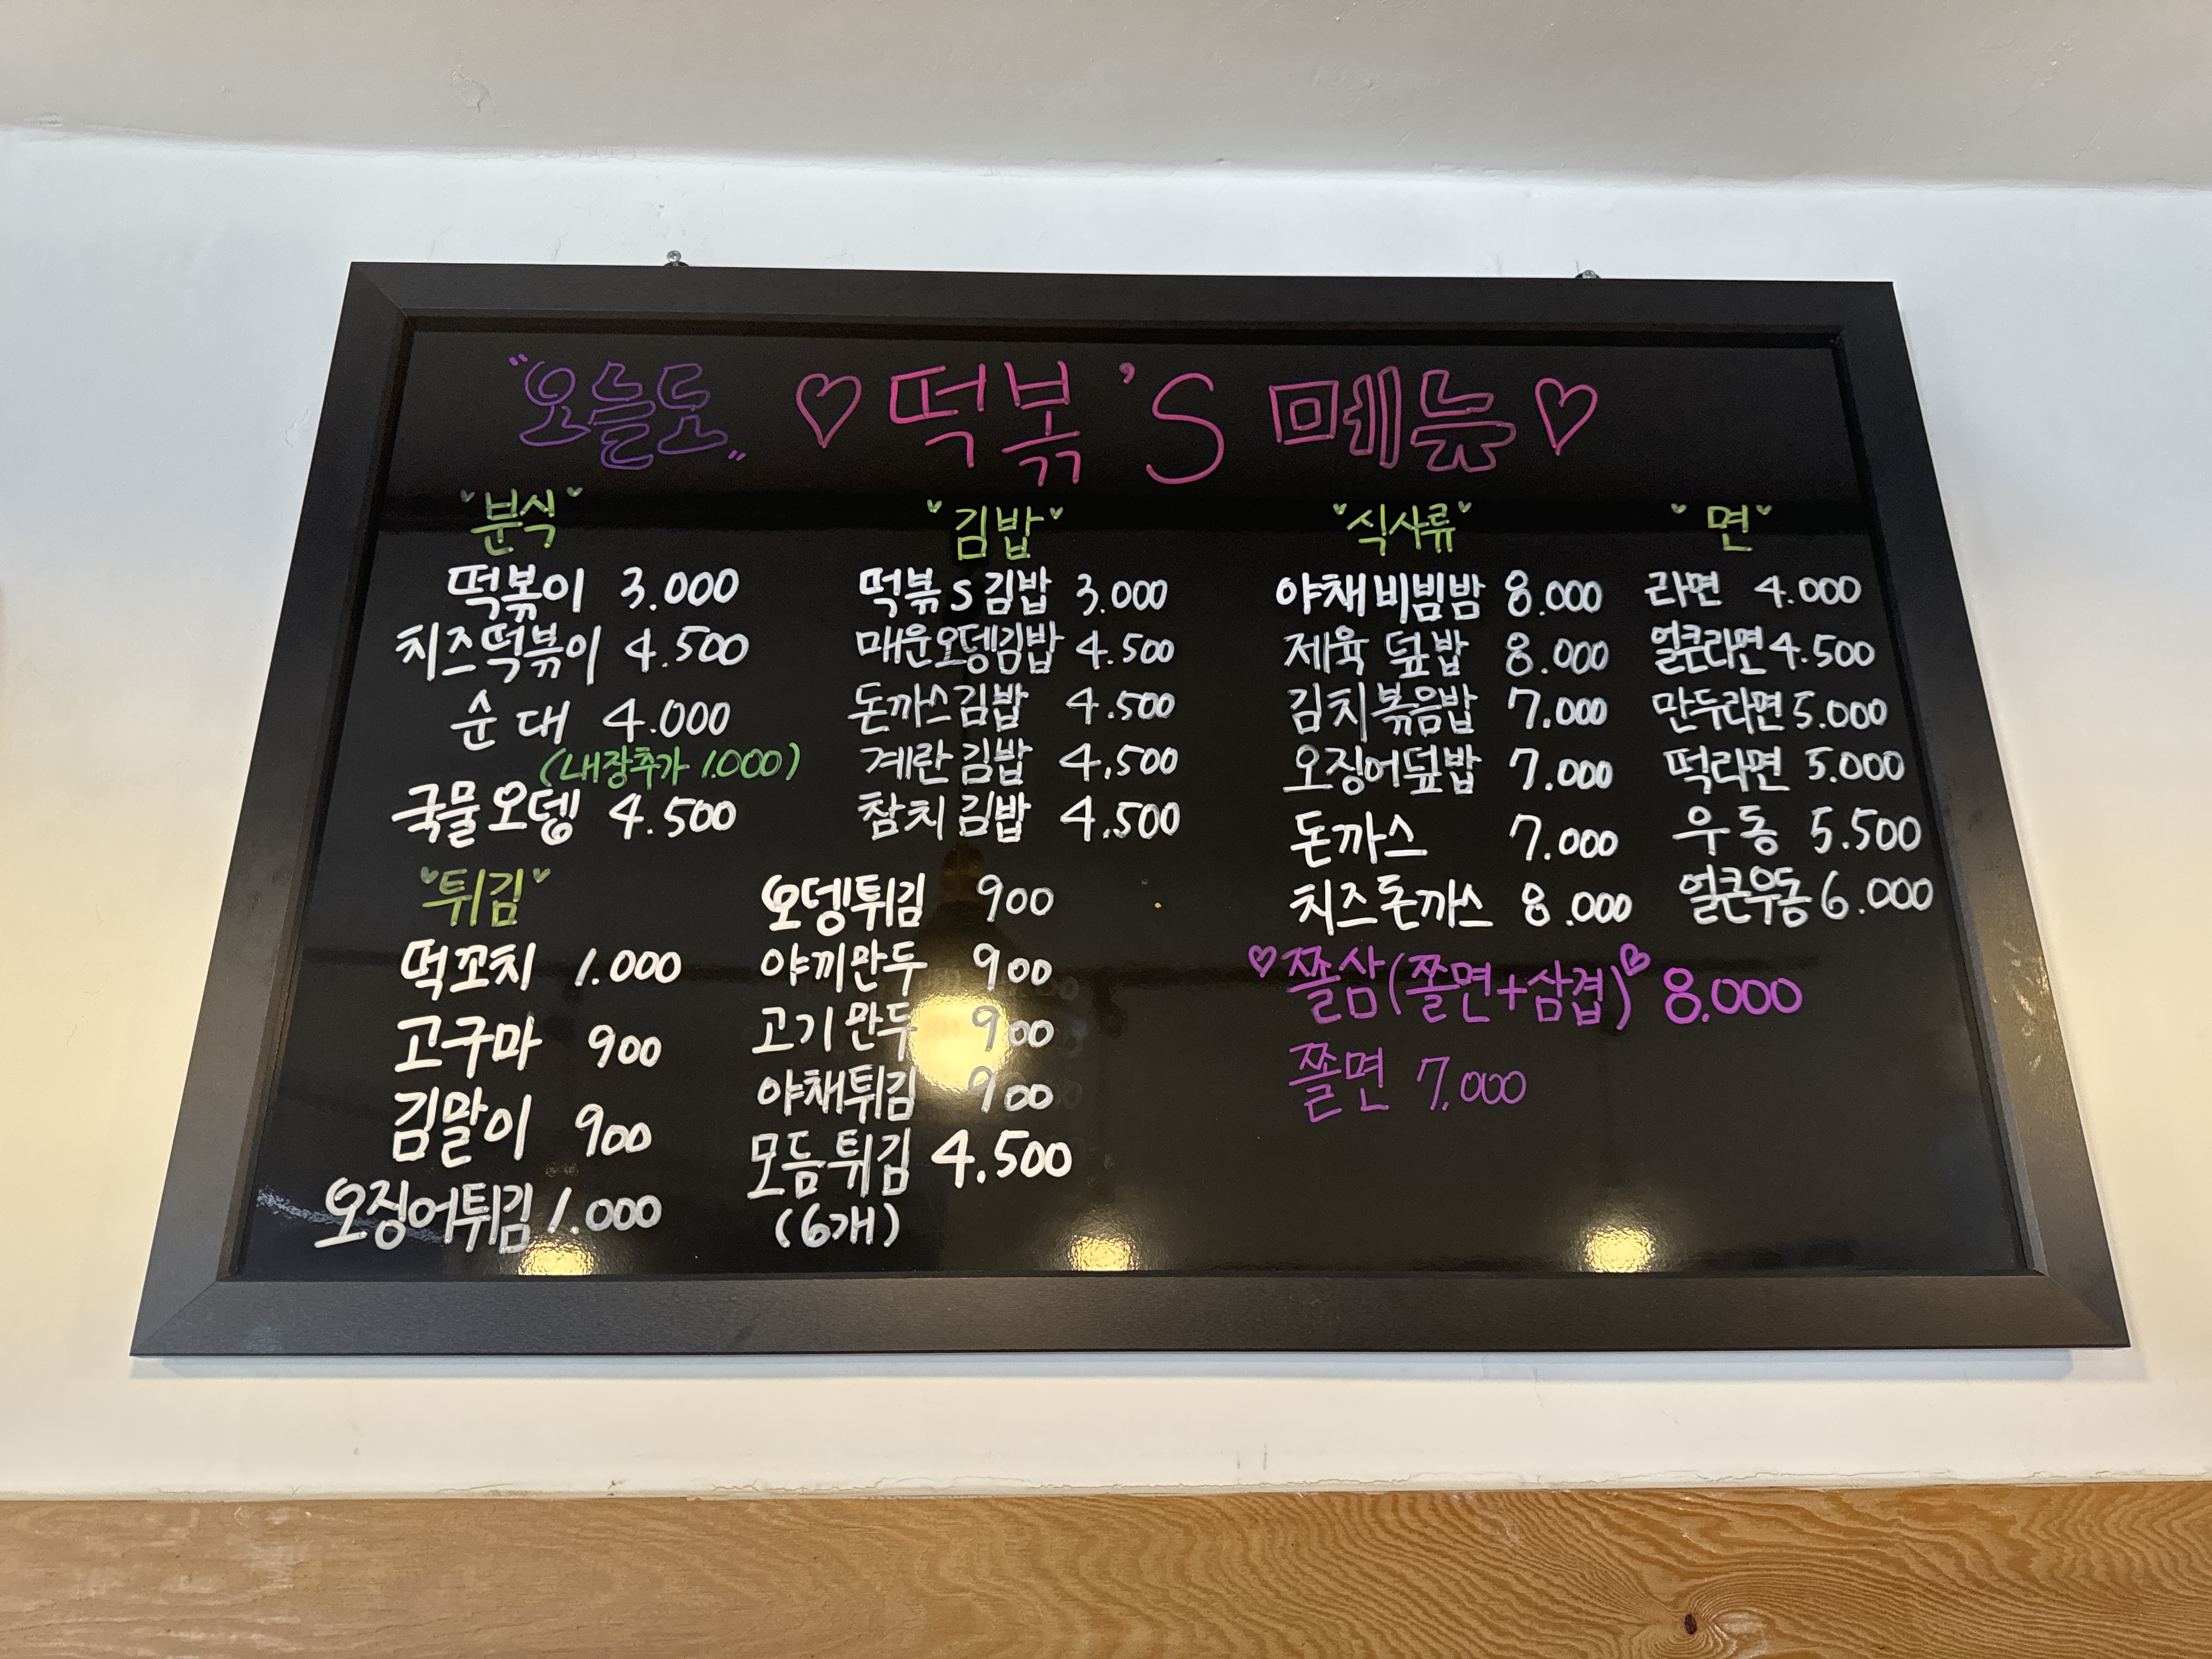 "오늘도" ♡떡볶'S 메뉴♡
분식
떡볶이 3.000
치즈떡볶이 4.500
순대 4.000
(내장추가 1.000)
국물오뎅 4.500
김밥
떡볶S김밥 3.000
매운오뎅김밥 4.500
돈까스김밥 4.500
계란김밥 4.500
참치김밥 4.500
식사류
야채비빔밤 8.000
제육덮밥 8.000
김치볶음밥 7.000
오징어덮밥 7.000
돈까스 7.000
치즈돈까스 8.000
♡쫄삼(쫄면+삼겹)♡ 8.000
쫄면 7.000
면
라면 4.000
얼큰라면 4.500
만두라면 5.000
떡라면 5.000
우동 5.500
얼큰우동 6.000
튀김
떡꼬치 1.000
고구마 900
김말이 900
오징어튀김 1.000
오뎅튀김 900
야끼만두 900
고기만두 900
야채튀김 900
모듬튀김 4.500
(6개)